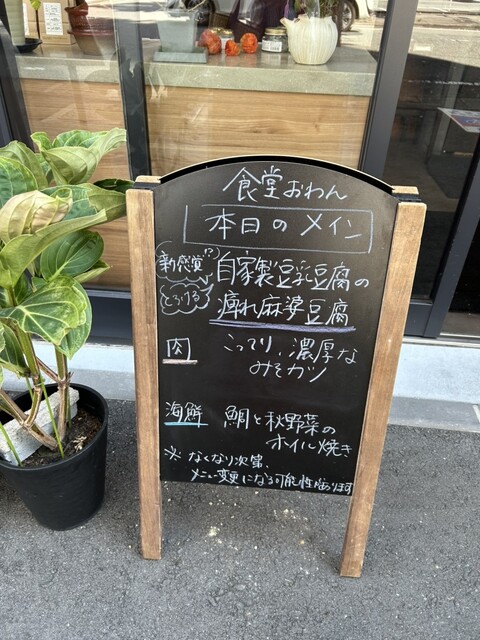 食堂おわん
本日のメイン
新感覚!?
とろける
自家製豆乳豆腐の
痺れ麻婆豆腐
肉
こってり、濃厚な
みそカツ
海鮮
鯛と秋野菜の
ホイル焼き
※なくなり次第、
メニュー変更になる可能性あります